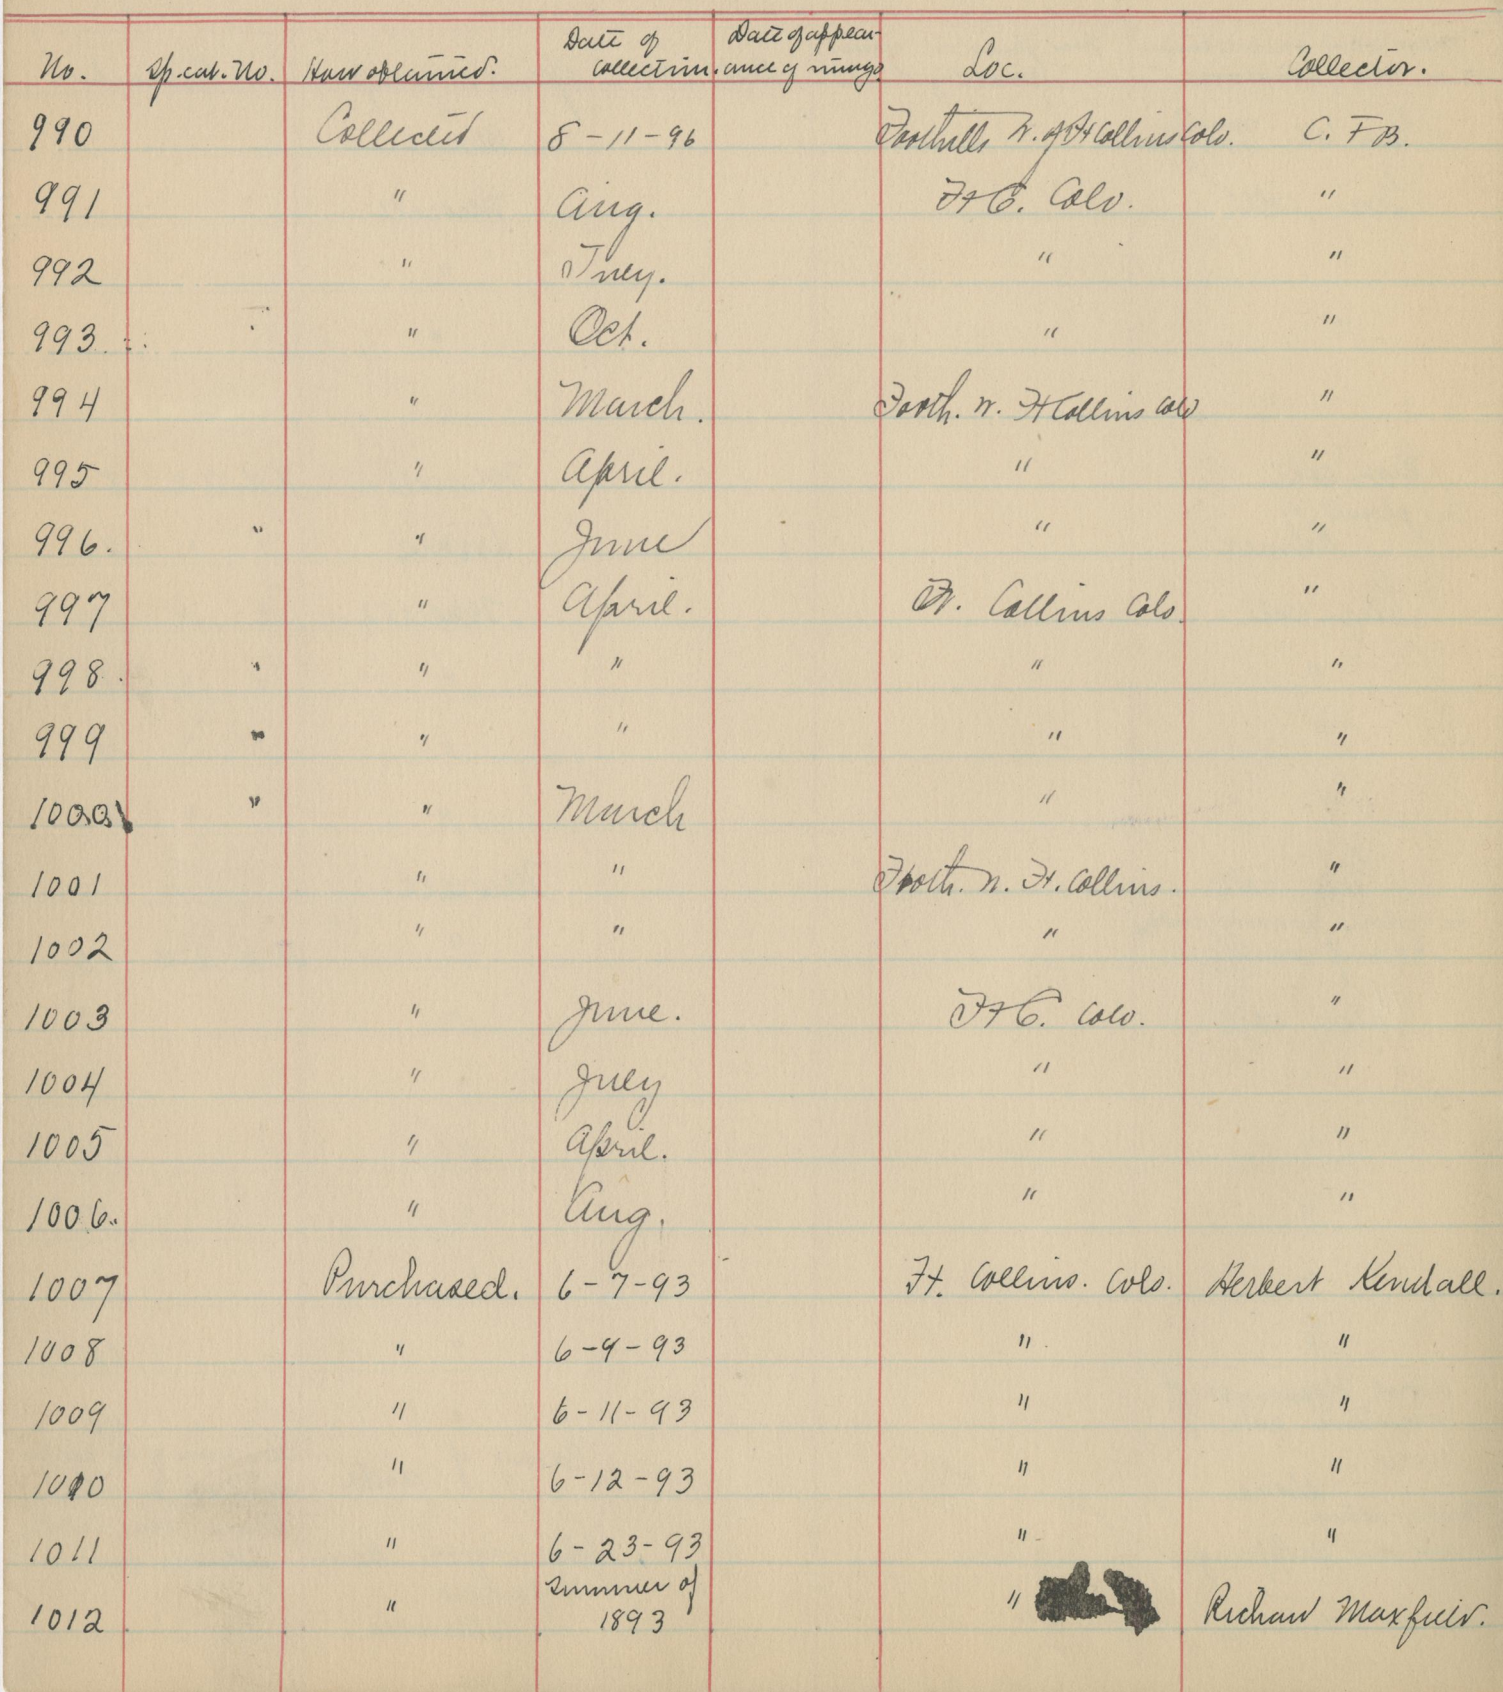 No. Sp. cat. No. How obtained. Date of collection. Date of appearance of image Loc. Collector.
990 Collected 8-11-96 Foothills W. of Ft Collins Colo. C. F B.
991 " Aug. Ft C. Colo. "
992 " July. " "
993. " Oct. " "
994 " March. Footh. W. Ft Collins Colo "
995 " April. " "
996. " " June " "
997 " April. Ft. Collins Colo. "
998. " " " " "
999 " " " " "
1000 " " March " "
1001 " " Footh. W. Ft. Collins. "
1002 " " " "
1003 " June. Ft C. Colo. "
1004 " July " "
1005 " April. " "
1006. " Aug. " "
1007 Purchased. 6-7-93 Ft. Collins. Colo. Herbert Kendall.
1008 " 6-9-93 " "
1009 " 6-11-93 " "
1010 " 6-12-93 " "
1011 " 6-23-93 " "
1012 " Summer of 1893 " Richard Maxfield.